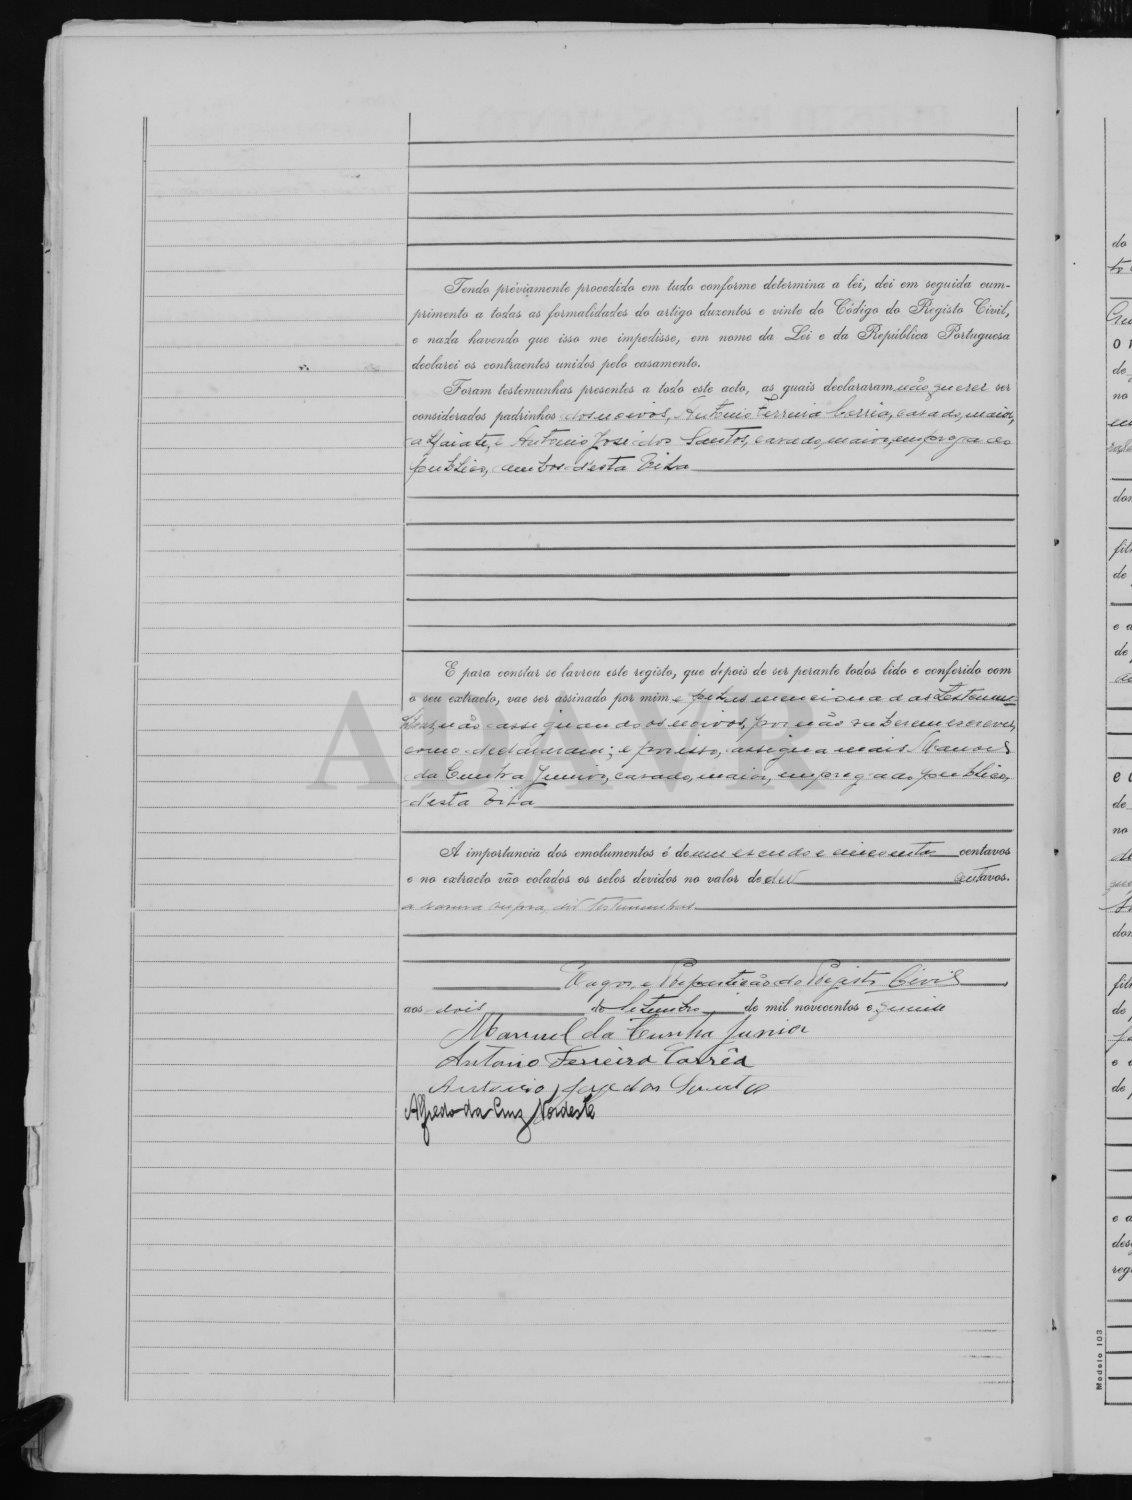 Tendo préviamente procedido em tudo conforme determina a lei, dei em seguida cum-
primento a todas as formalidades do artigo duzentos e vinte do Código do Registo Civil,
e nada havendo que isso me impedisse, em nome da Lei e da República Portuguesa
declarei os contraentes unidos pelo casamento.
Foram testemunhas presentes a todo este acto, as quais declararam não querer ser
considerados padrinhos dos noivos, Antonio Ferreira Corrêa, casado, maior,
alfaiate, e Antonio José dos Santos, casado, maior, empregado
publico, ambos desta Vila
E para constar se lavrou este registo, que depois de ser perante todos lido e conferido com
o seu extracto, vae ser assinado por mim e pelas mencionadas testemu-
nhas, não assignando os noivos, por não saberem escrever,
como declararam; e por isso, assigna mais Manoel
da Cunha Junior, casado, maior, empregado publico,
desta Vila
A importancia dos emolumentos é de um escudo e cincoenta centavos
e no extracto vão colados os selos devidos no valor de dez centavos.
supra, diz testemunhas
Vagos, e Repartição do Registo Civil
aos dois de Setembro de mil novecentos e quinze
Manuel da Cunha Junior
Antonio Ferreira Corrêa
Antonio José dos Santos
Alfredo da Cruz Nordeste
ADAVR
do
de
no
don
fil
de
e a
de
de
no
don
fil
de
e a
des
reg
Modelo 103